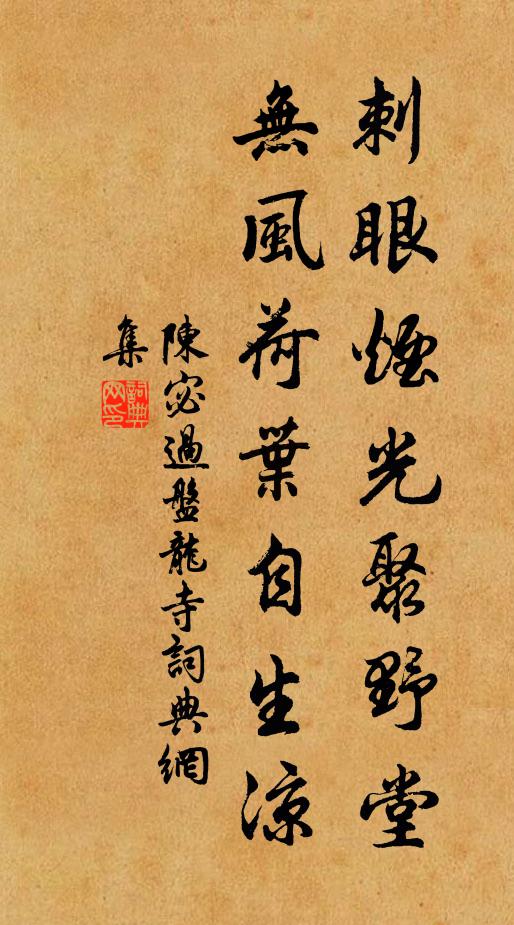 刺眼煙光聚野堂
無風荷葉自生涼
陳宓過盤龍寺詞典網
集
詞典
网印